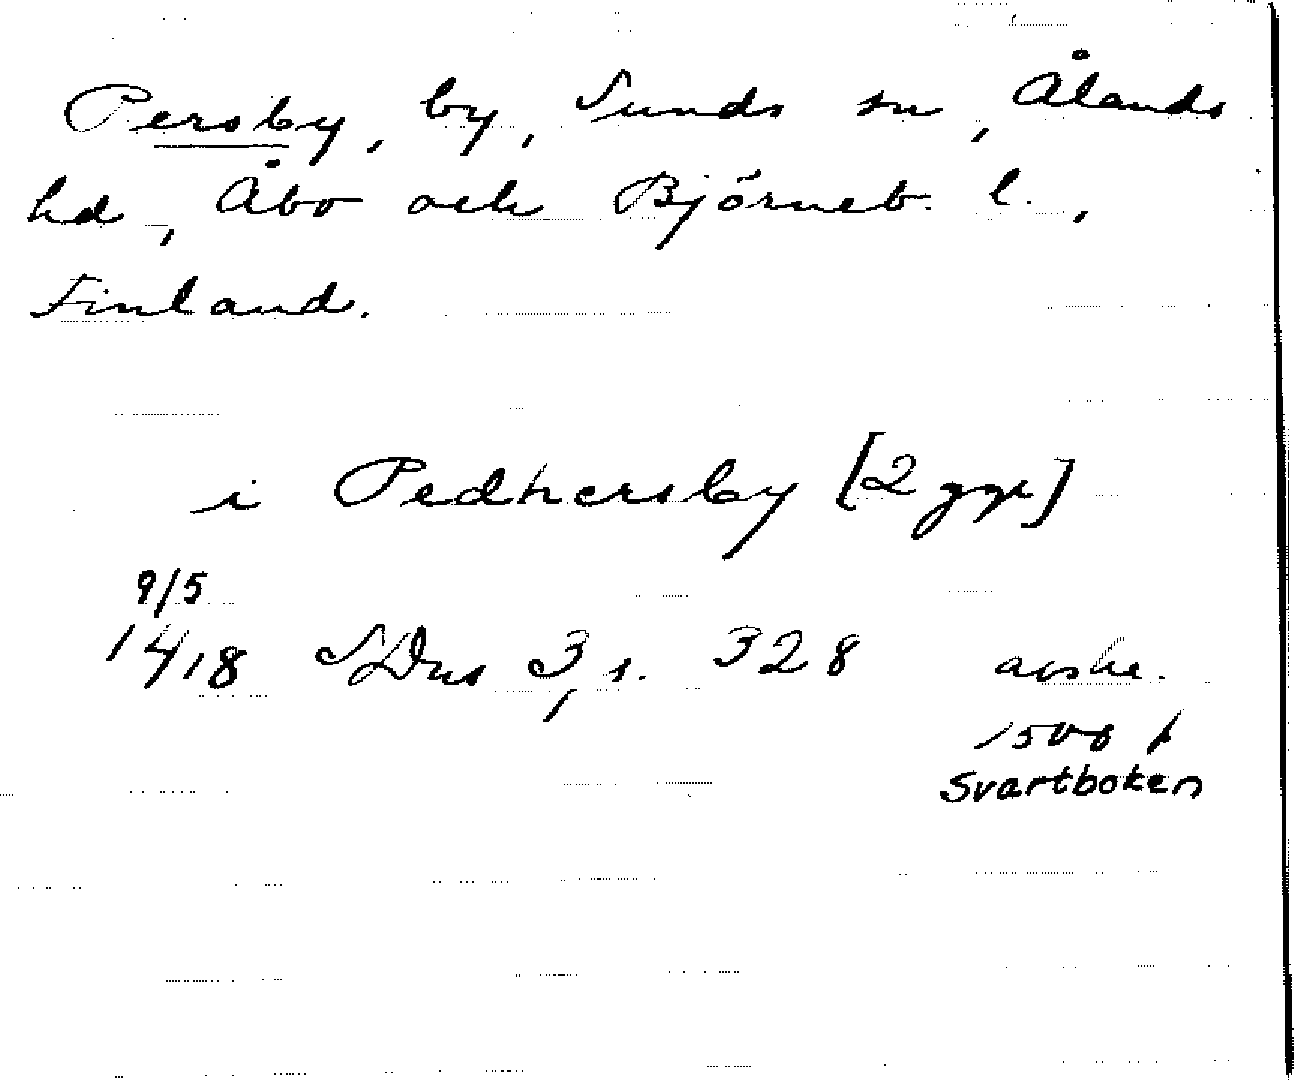 Persby, by, Sunds sn, Ålands
hd, Åbo och Björneb. l.,
Finland.
i Pedhersby [2 ggr]
9/5
1418 SDns 3, s. 328 avskr.
1500 t
Svartboken